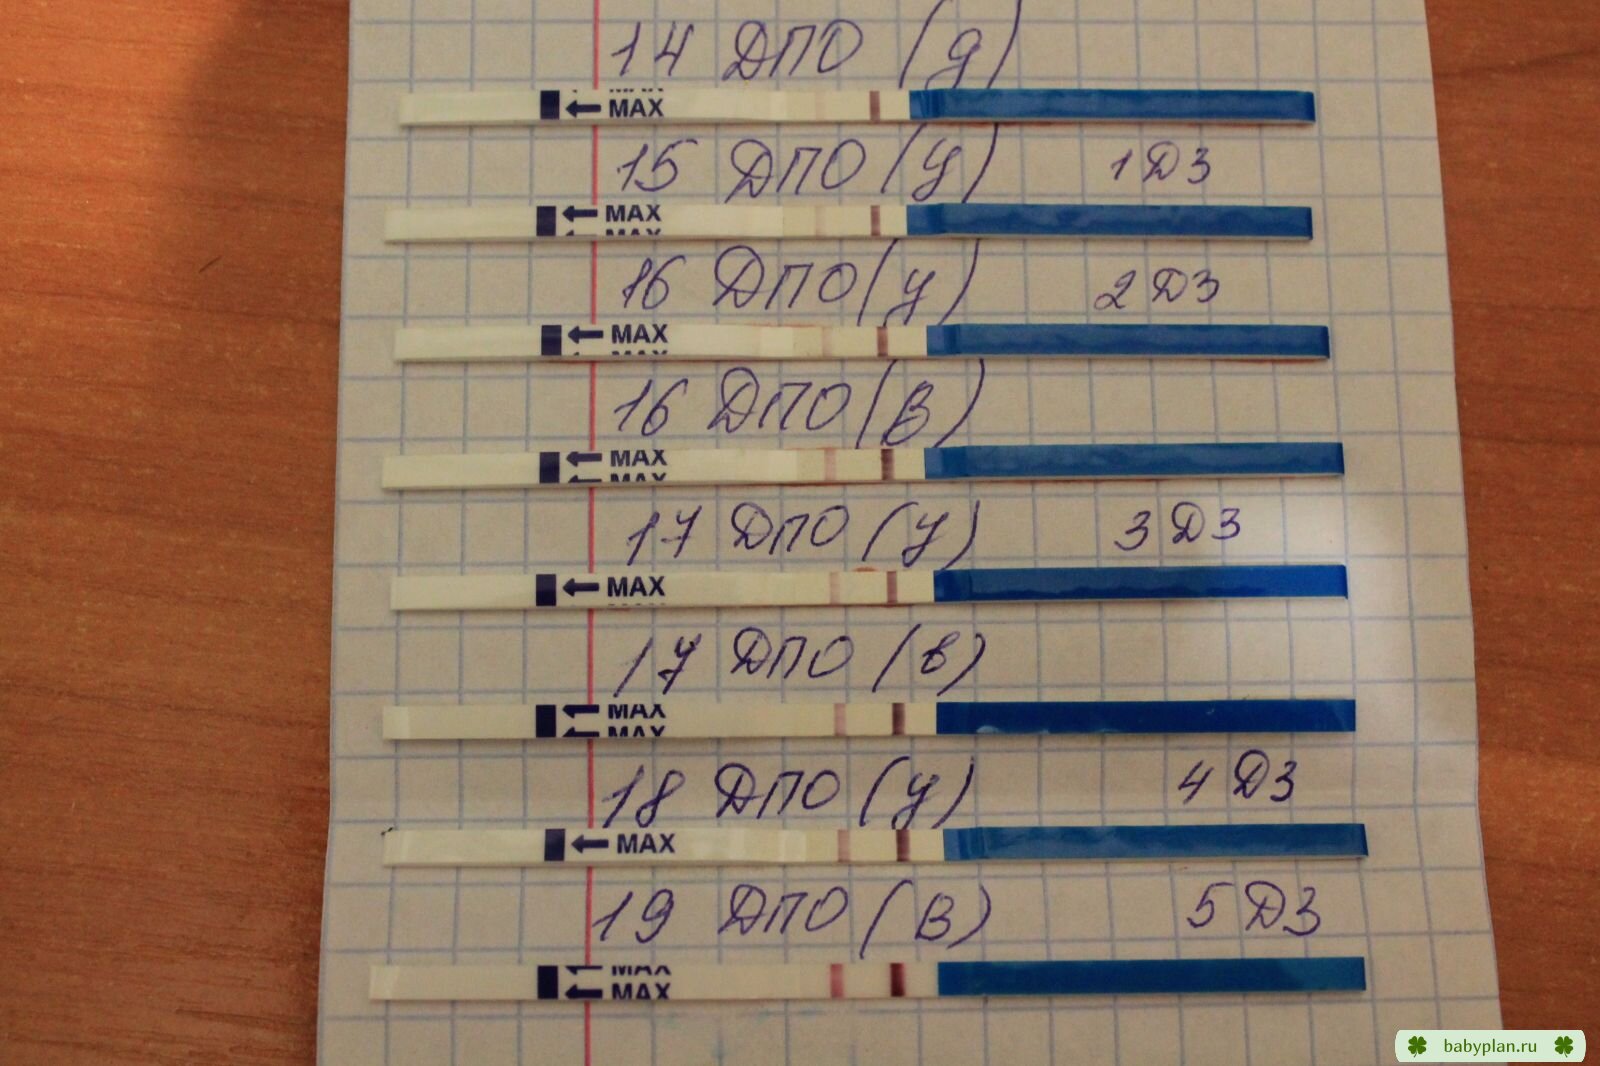 14 ДПО (д)
MAX
15 ДПО (у) 1 ДЗ
MAX
MAX
16 ДПО (у) 2 ДЗ
MAX
MAX
16 ДПО (В)
MAX
MAX
17 ДПО (у) 3 ДЗ
MAX
17 ДПО (в)
MAX
MAX
18 ДПО (у) 4 ДЗ
MAX
19 ДПО (В) 5 ДЗ
MAX
MAX
babyplan.ru